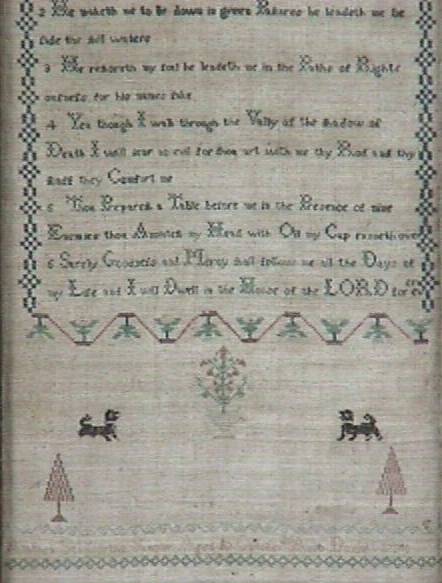 2 He maketh me to lie down in green Pastures he leadeth me be
side the still waters
3 He restoreth my soul he leadeth me in the Paths of Righte
ousness for his names sake
4 Yea though I walk through the Vally of the shadow of
Death I will fear no evil for thou art with me thy Rod and thy
staff they Comfort me
5 Thou Preparest a Table before me in the Presence of mine
Enemies thou Anointest my Head with Oil my Cup runneth over
6 Surely Goodness and Mercy shall follow me all the Days of
my Life and I will Dwell in the House of the LORD for ever